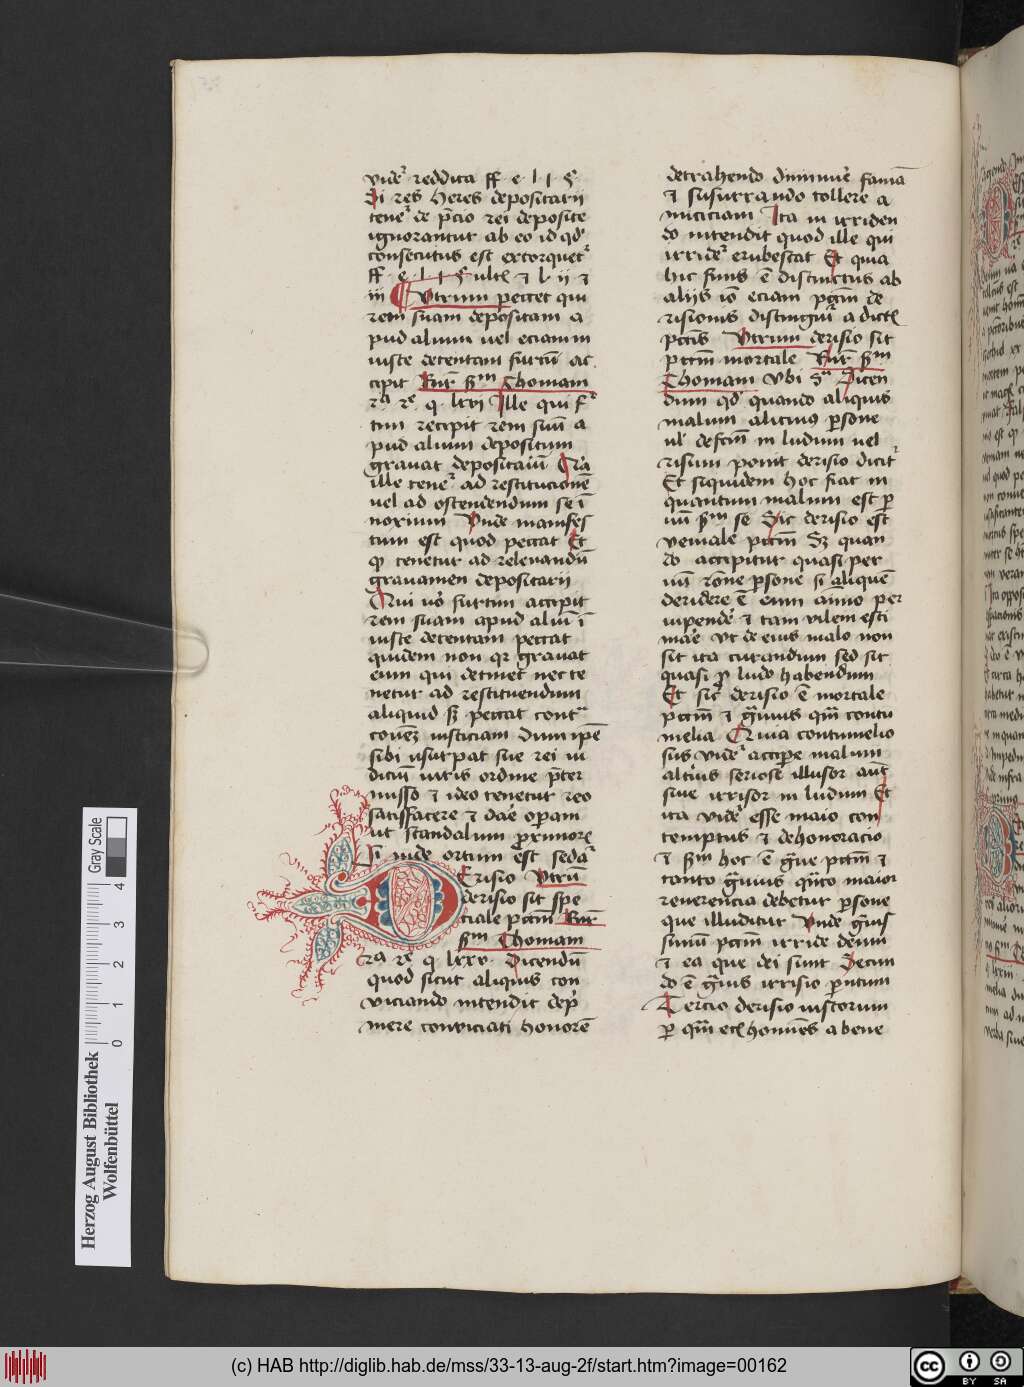 vider̄ reddita ff e l 1 §
Si res heres depositarii
tener̄ de p̄cio rei deposite
ignorantur ab eo id qd̕
consecutus est extorquet̄
ff e l 1 § ult̄ ⁊ l ii ⁊
iii Utrum peccet qui
rem suam depositam a
pud alium vel eciam in
iuste detentam furtū ac
cipit Rn̄r scdm Thomam
2ª 2ᵉ q lxvi Ille qui fur
tim recipit rem suā a
pud alium depositum
gravat depositariū Quia
ille tener̄ ad restitucionē
vel ad ostendendum se ī
noxium Unde manifes
tum est quod peccat Et
qz tenetur ad relevandū
gravamen depositarii
Qui vo̕ furtim accipit
rem suam apud aliū ī
iuste detentam peccat
quidem non qz gravat
eum qui detinet nec te
netur ad restituendum
aliquid sz peccat contª
cōmunez iusticiam Dum ipē
sibi usurpat sue rei iu
diciū iuris ordine p̄ter
misso ⁊ ideo tenetur deo
satisfacere ⁊ dare operam
ut scandalum proximorꝝ
si inde ortum est sedar̄
Derisio Utrū
derisio sit spe
ciale pctm̄ Rn̄r
scdm Thomam
2ª 2ᵉ q lxxv Dicendū
quod sicut aliquis con
viciando intendit dep̄
mere conviciati honorē
detrahendo diminuere famā
⁊ susurrando tollere a
miciciam Ita in irriden
do intendit quod ille qui
irrider̄ erubescat Et quia
hic finis ē distinctus ab
aliis iō eciam pctm̄ de
risionis distinguir̄ a dict̄
pctīs Utrum derisio sit
pctm̄ mortale Rn̄r scdm
Thomam ubi sª Dicen
dum qd̕ quando aliquis
malum alicuius persone
vel defectum in ludum vel
risum ponit derisio dicit̄
Et siquidem hoc fiat in
quantum malum est p
vū scdm se Sic derisio est
veniale pctm̄ Sz quan
do accipitur quasi per
vū rōne persone si aliquē
deridere ē eum oīno per
vipendere ⁊ tam vilem esti
mare ut de eius malo non
sit ita curandum sed sit
quasi pro ludo habendum
Et sic derisio ē mortale
pctm̄ ⁊ gravius quam contu
melia Quia contumelio
sus vider̄ accipere malum
alterius seriose illusor autem
sive irrisor in ludum Et
ita vider̄ esse maio con
temptus ⁊ dehonoracio
⁊ scdm hoc ē grave pctm̄ ⁊
tanto gravius quanto maiori
reverencia debetur persone
que illuditur Unde gravis
simum pctm̄ irride deum
⁊ ea que dei sunt Secun
do ē gravius irrisio parentum
Tercio derisio iustorum
per quam eciam homines a bene
Herzog August Bibliothek
Wolfenbüttel
Gray Scale
0 1 2 3 4
(c) HAB http://diglib.hab.de/mss/33-13-aug-2f/start.htm?image=00162
cc BY SA